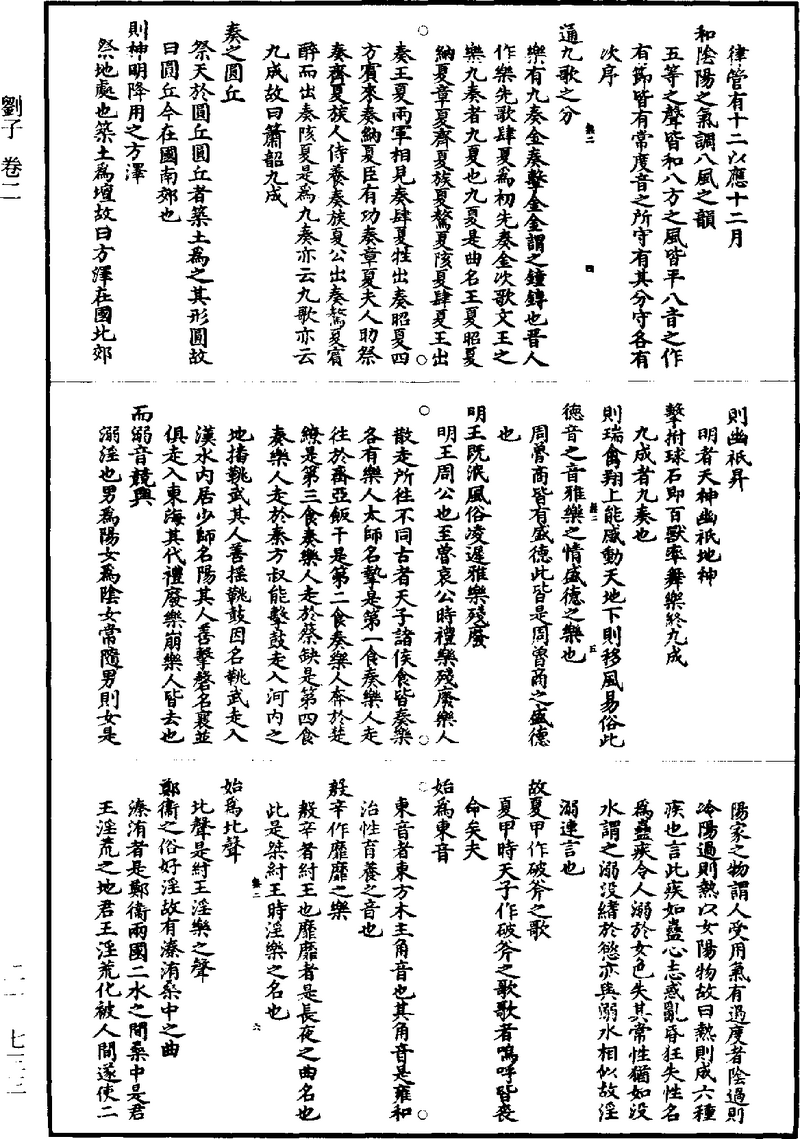 律管有十二以應十二月
和陰陽之氣調八風之韻
五等之聲皆和八方之風皆平八音之作
有節皆有常度音之所守有其分守各有
次序
通九歌之分
樂有九奏金奏擊金金謂之鐘鎛也晋人
作樂先歌肆夏爲初先奏金次歌文王之
樂九奏者九夏也九夏是曲名王夏昭夏
納夏章夏齊夏族夏驁夏陔夏肆夏王出
奏王夏兩軍相見奏肆夏牲出奏昭夏四
方賓來奏納夏臣有功奏章夏夫人助祭
奏齊夏族人侍養奏族夏公出奏驁夏賓
醉而出奏陔夏是爲九奏亦云九歌亦云
九成故曰簫韶九成
奏之圓丘
祭天於圓丘圓丘者築土爲之其形圓故
曰圓丘今在國南郊也
則神明降用之方澤
祭地處也築土爲壇故曰方澤在國北郊
則幽祇昇
明者天神幽祇地神
擊拊球石即百獸率舞樂終九成
九成者九奏也
則瑞禽翔上能感動天地下則移風易俗此
德音之音雅樂之情盛德之樂也
周魯商皆有盛德此皆是周魯商之盛德
也
明王既泯風俗凌遲雅樂殘廢
明王周公也至魯哀公時禮樂殘廢樂人
散走所往不同古者天子諸侯食皆奏樂
各有樂人太師名摯是第一食奏樂人走
往於齊亞飯干是第二食奏樂人奔於楚
繚是第三食奏樂人走於蔡缺是第四食
奏樂人走於秦方叔能擊鼓走入河内之
地播鞉武其人善搖鞉鼓因名鞉武走入
漢水内居少師名陽其人善擊磬名襄並
俱走入東海其代禮廢樂崩樂人皆去也
而溺音競興
溺淫也男爲陽女爲陰女常隨男則女是
陽家之物謂人受用氣有過度者陰過則
冷陽過則熱以女陽物故曰熱則成六種
疾也言此疾如蠱心志惑亂昏狂失性名
爲蠱疾令人溺於女色失其常性猶如没
水謂之溺没緒於慾亦與溺水相似故淫
溺連言也
故夏甲作破斧之歌
夏甲時天子作破斧之歌歌者嗚呼皆喪
命矣夫
始爲東音
東音者東方木主角音也其角音是雍和
治性育養之音也
殷辛作靡靡之樂
殷辛者紂王也靡靡者是長夜之曲名也
此是桀紂王時淫樂之名也
始爲北聲
北聲是紂王淫樂之聲
鄭衛之俗好淫故有溱洧桑中之曲
溱洧者是鄭衛兩國二水之間桑中是君
王淫荒之地君王淫荒化被人間遂使二
劉子 卷二